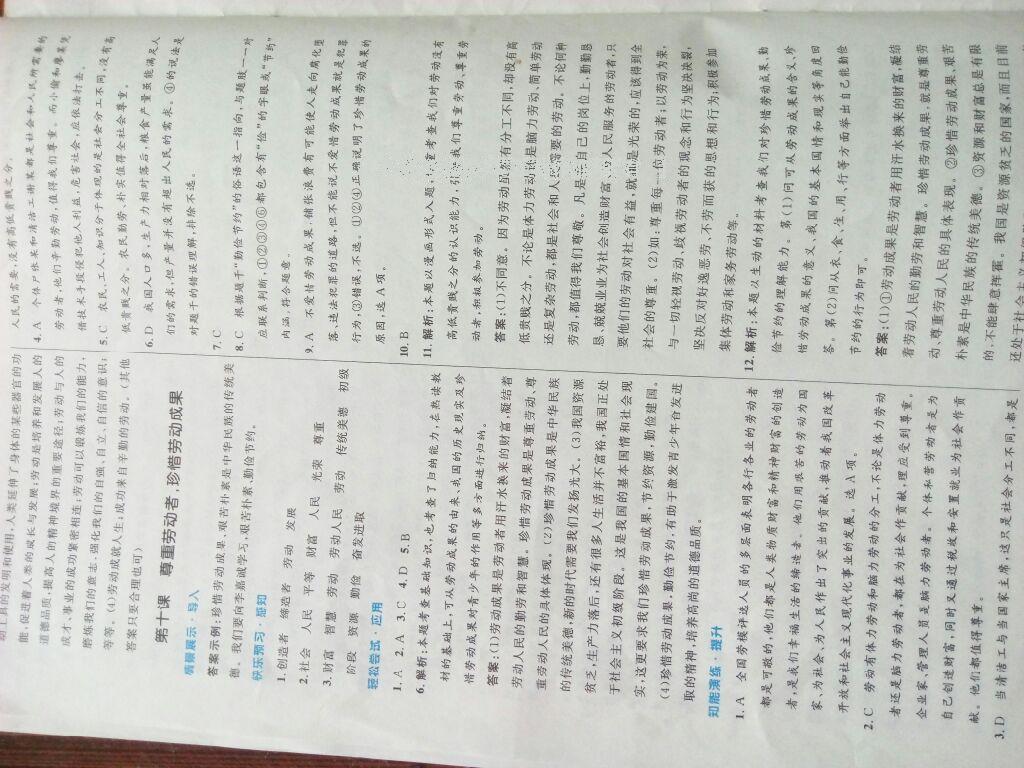 动工具的发明和使用，人类延伸了身体的某些器官的功
能，促进着人类的成长与发展；劳动是培养和发展人的
道德品质，提高人的精神境界的重要途径；劳动与人的
成才、事业的成功紧密相连；劳动可以锻炼我们的能力，
磨炼我们的意志，强化我们的自强、自立、自信的意识；
等等。(4)劳动成就人生；成功来自辛勤的劳动。(其他
答案只要合理也可)
第十课 尊重劳动者，珍惜劳动成果
情景展示·导入
答案示例：珍惜劳动成果、艰苦朴素是中华民族的传统美
德。我们要向李嘉诚学习，艰苦朴素、勤俭节约。
快乐预习·感知
1. 创造者 缔造者 劳动 发展
2. 社会 人民 平等 财富 人民 光荣 尊重
3. 财富 智慧 劳动 劳动人民 劳动 传统美德 初级
阶段 资源 勤俭 奋发进取
轻松尝试·应用
1. A 2. A 3. C 4. D 5. B
6. 解析：本题考查基础知识，也考查了归纳能力，在熟读教
材的基础上，可从劳动成果的由来、我国的历史现实及珍
惜劳动成果对青少年的作用等多方面进行归纳。
答案：(1)劳动成果是劳动者用汗水换来的财富，凝结着
劳动人民的勤劳和智慧。珍惜劳动成果是尊重劳动、尊
重劳动人民的具体体现。(2)珍惜劳动成果是中华民族
的传统美德，新的时代需要我们发扬光大。(3)我国资源
贫乏，生产力落后，还有很多人生活并不富裕，我国正处
于社会主义初级阶段。这是我国的基本国情和社会现
实，这更要求我们珍惜劳动成果，节约资源，勤俭建国。
(4)珍惜劳动成果，勤俭节约，有助于激发青少年奋发进
取的精神，培养高尚的道德品质。
知能演练·提升
1. A 全国劳模评选人员的多层面表明各行各业的劳动者
都是可敬的，他们都是人类物质财富和精神财富的创造
者，是我们幸福生活的缔造者。他们用艰苦的劳动为国
家、为社会、为人民作出了突出的贡献，推动着我国改革
开放和社会主义现代化事业的发展。选 A 项。
2. C 劳动有体力劳动和脑力劳动的分工，不论是体力劳动
者还是脑力劳动者，都在为社会作贡献，理应受到尊重。
企业家、管理人员是脑力劳动者。个体私营劳动者走为
自己创造财富，同时又通过税收和安置就业为社会作贡
献。他们都值得尊重。
3. D 当清洁工与当国家主席，这只是社会分工不同，都是
人民的需要，没有高低贵贱之分。
4. A 个体户张某和清洁工谢某都是社会人民所需要的
劳动者，他们辛勤劳动，值得我们尊重。而小偷和摩某凭
借技术手段侵犯他人利益，危害社会，应依法打击。
5. C 农民、工人、知识分子体现的是社会分工不同，没有高
低贵贱之分。农民勤劳、朴实值得全社会尊重。
6. D 我国人口多，生产力相对落后，粮食产量虽能满足人
们的需求，但产量并没有超出人民的需求。④的说法是
对题干的错误理解，排除不选。
7. C
8. C 根据题干“勤俭节约”的俗语这一指向，与题肢一一对
应联系判断，①②③④⑥都包含有“俭”的字眼或“节约”
内涵，符合题意。
9. A 不爱惜劳动成果、铺张浪费有可能使人走向腐化堕
落、违法犯罪的道路，但不能说不爱惜劳动成果就是犯罪
行为，③错误，不选。①②④正确说明了珍惜劳动成果的
原因，选 A 项。
10. B
11. 解析：本题以漫画形式入题，重考查我们对劳动没有
高低贵贱之分的认识能力，引导我们尊重劳动、尊重劳
动者，积极参加劳动。
答案：(1)不同意。因为劳动虽然有分工不同，却没有高
低贵贱之分。不论是体力劳动还是脑力劳动、简单劳动
还是复杂劳动，都是社会和人民需要的劳动。不论何种
劳动，都值得我们尊敬。凡是在自己的岗位上，勤勤恳
恳、兢兢业业为社会创造财富、为人民服务的劳动者，只
要他们的劳动对社会有益，就都是光荣的，应该得到全
社会的尊重。(2)如：尊重每一位劳动者；以劳动为荣，
与一切轻视劳动、歧视劳动者的观念和行为坚决决裂，
坚决反对好逸恶劳、不劳而获的思想和行为；积极参加
集体劳动和家务劳动等。
12. 解析：本题以生动的材料考查我们对珍惜劳动成果、勤
俭节约的理解能力。第(1)问可从劳动成果的含义、珍
惜劳动成果的意义、我国的基本国情和现实等角度回
答。第(2)问从衣、食、生、用、行等方面举出自己能勤俭
节约的行为即可。
答案：(1)①劳动成果是劳动者用汗水换来的财富，凝结
着劳动人民的勤劳和智慧。珍惜劳动成果，就是尊重劳
动、尊重劳动人民的具体表现。②珍惜劳动成果、艰苦
朴素是中华民族的传统美德。③资源和财富总是有限
的，不能肆意挥霍。我国是资源贫乏的国家，而且目前
还处于社会主义初